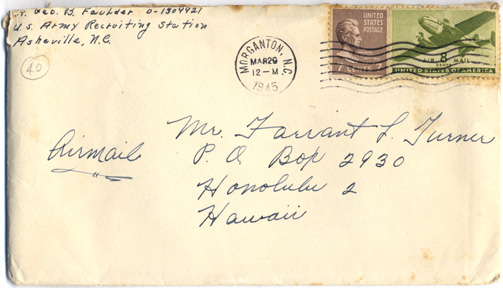 Lt. Geo. B. Faulder O-1304421
U.S. Army Recruiting Station
Asheville, N.C.
40
MORGANTON, N.C.
MAR 29
12-M
1945
UNITED
STATES
POSTAGE
7
AIR 8 MAIL
CENTS
UNITED STATES OF AMERICA
Airmail
Mr. Farrant L. Turner
P. O. Box 2930
Honolulu 2
Hawaii